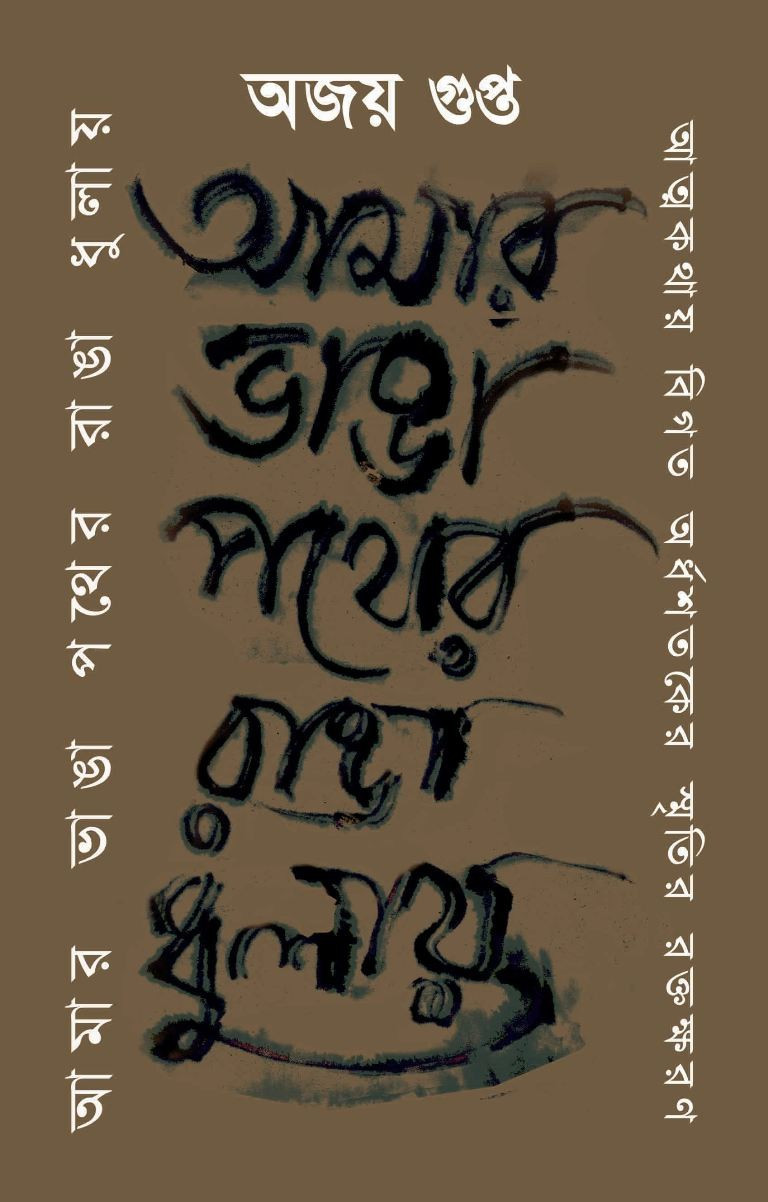 অজয় গুপ্ত
আমার
ভাঙা
পথের
রাঙা
ধুলায়
আমার ভাঙা পথের রাঙা ধুলায়
আত্মকথায় বিগত অর্ধশতকের স্মৃতির রক্তক্ষরণ